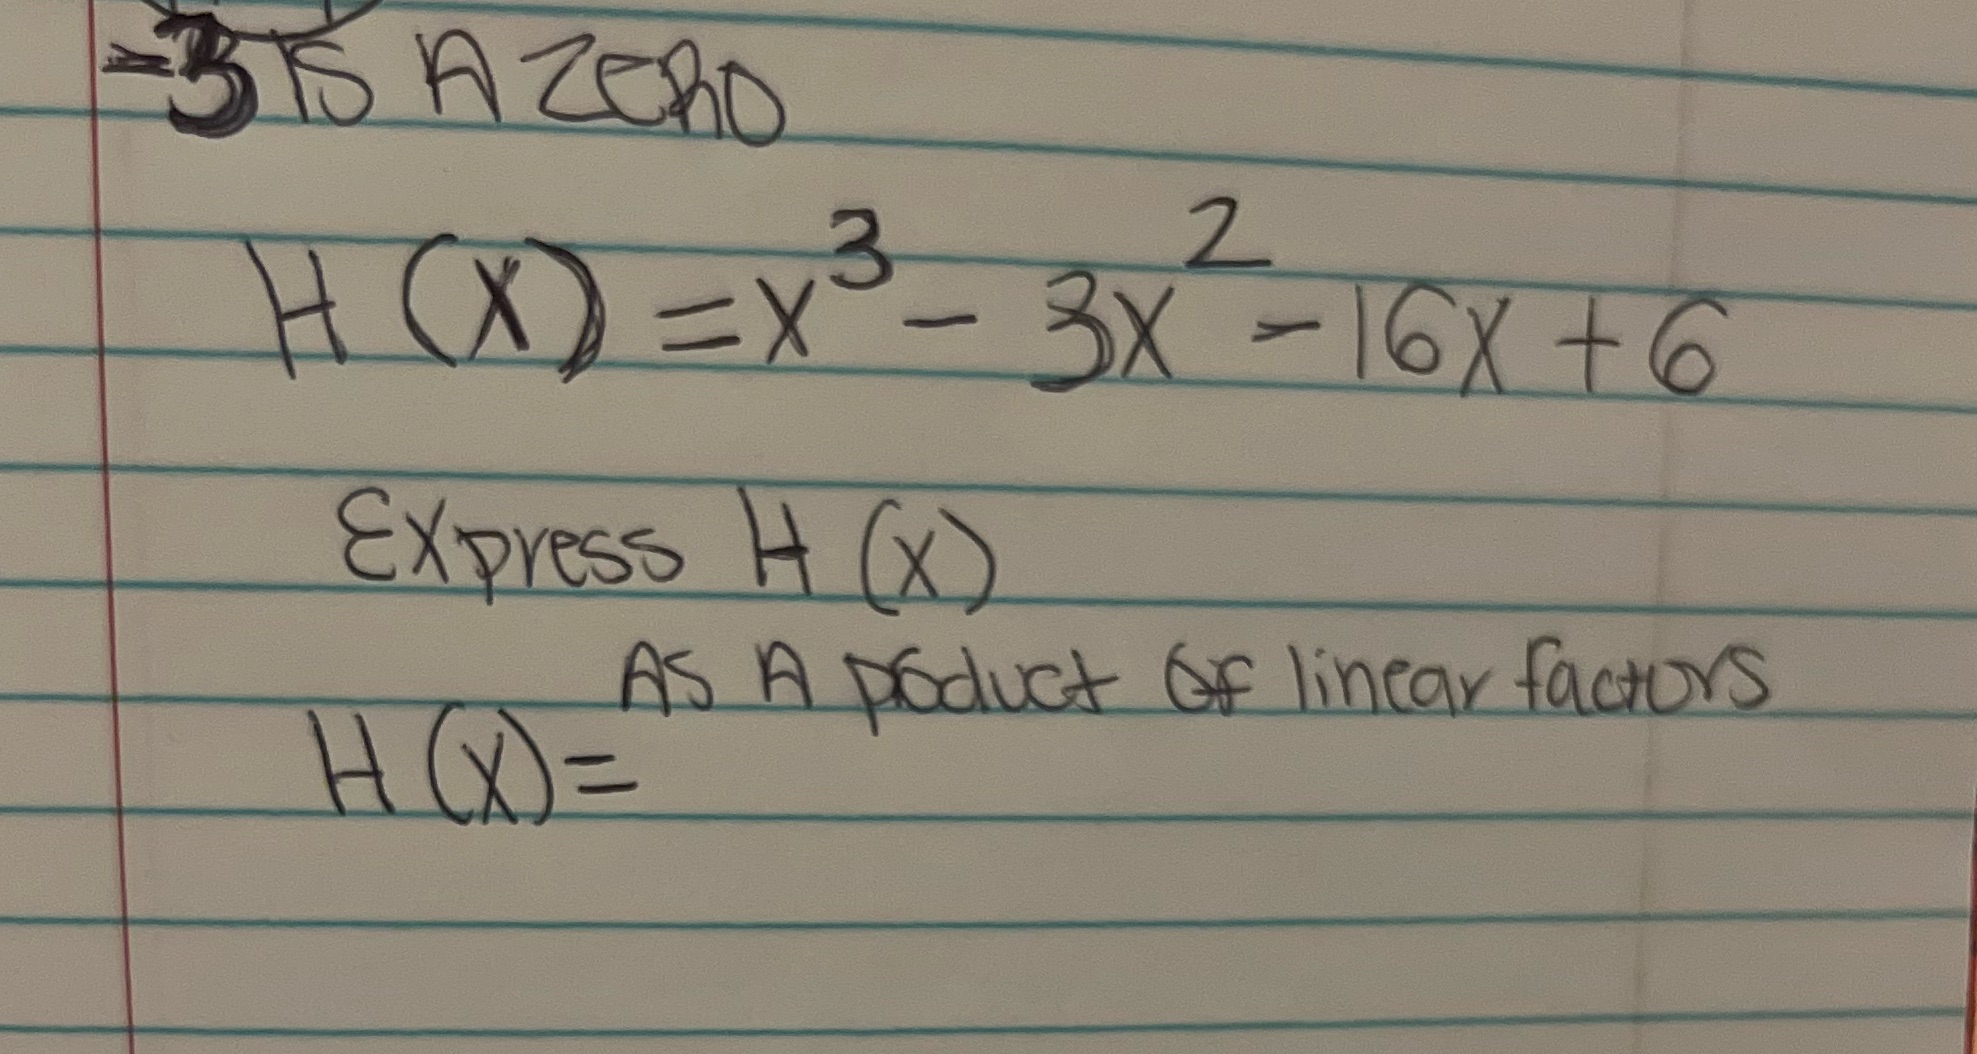 -3 IS A ZERO
H (X) = x³ - 3x² - 16x + 6
Express H (X)
AS A product Of linear factors
H (X) =